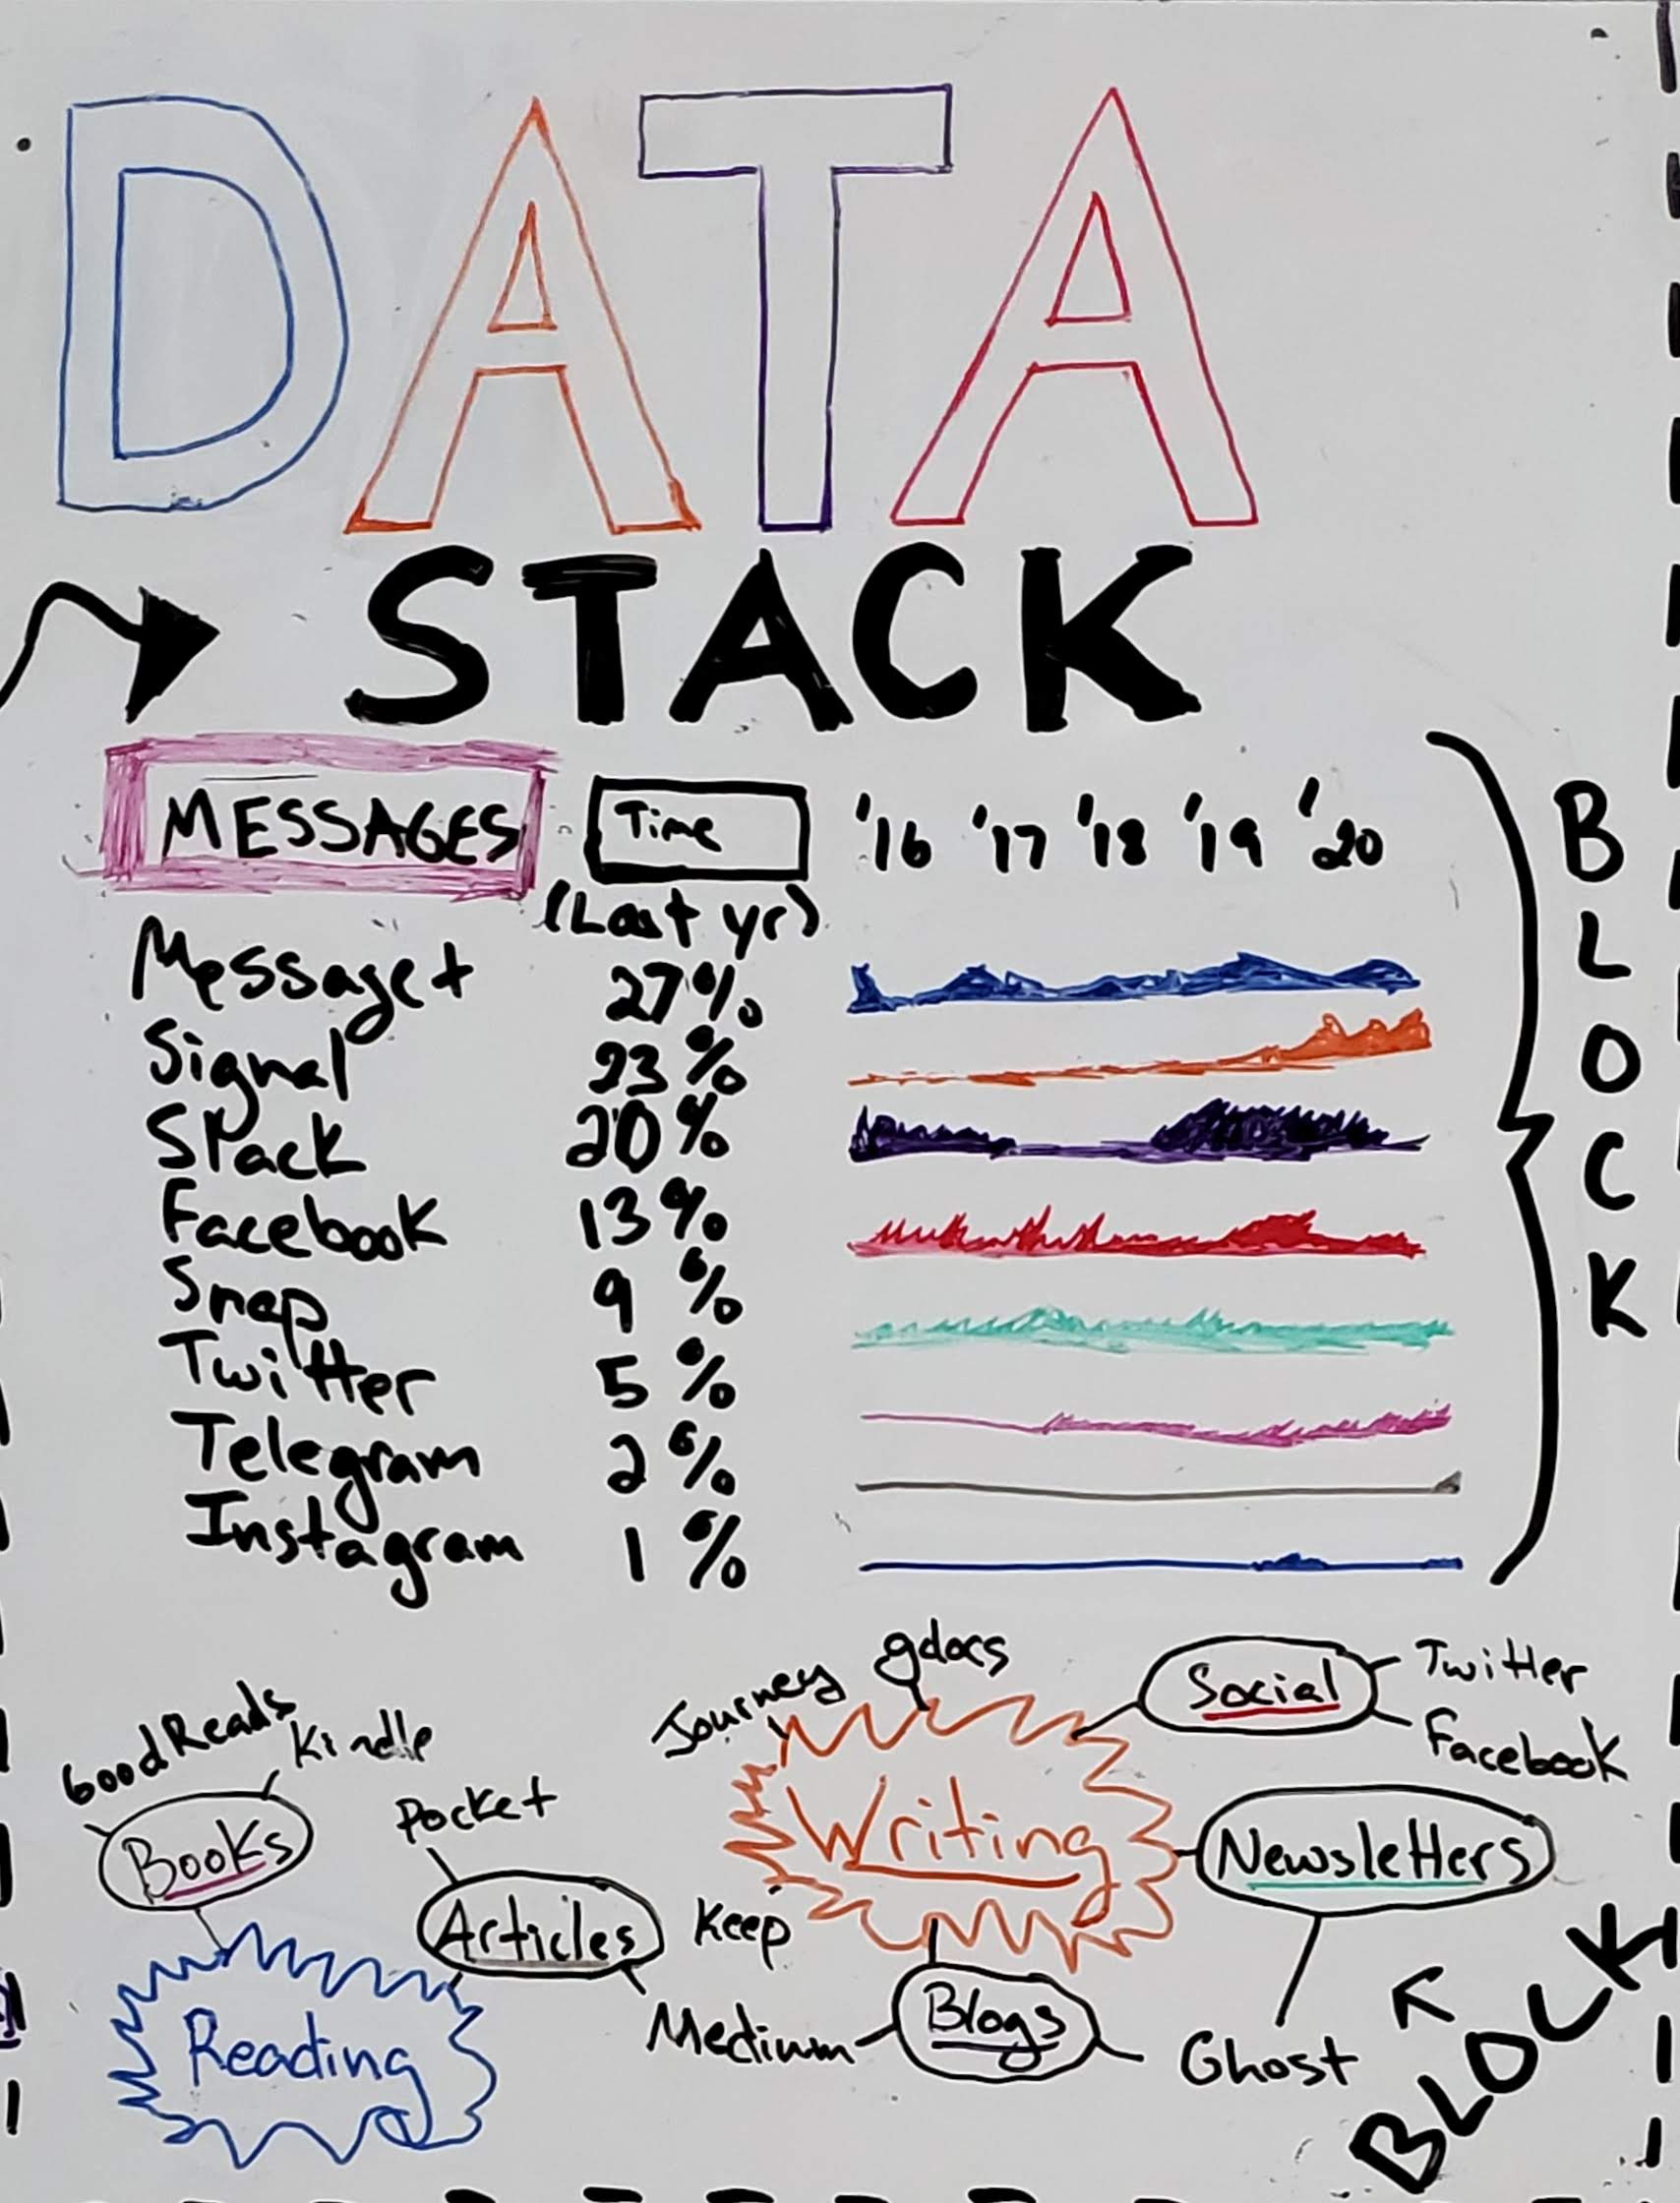 DATA
STACK
MESSAGES Time '16 '17 '18 '19 '20
(Last yr)
Message+ 27%
Signal 23%
Slack 20%
Facebook 13%
Snap 9%
Twitter 5%
Telegram 2%
Instagram 1%
BLOCK
GoodReads
Kindle
Books
Pocket
Articles
Reading
Journey
gdocs
Social
Twitter
Facebook
Writing
Newsletters
Keep
Medium
Blogs
Ghost
BLOCK